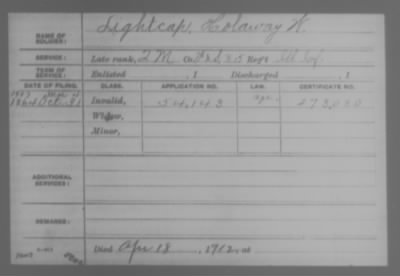 NAME OF SOLDIER: Lightcap, Holaway W.
SERVICE: Late rank, 2 M Co. F & S, 25 Reg't Ill. Inf.
TERM OF SERVICE: Enlisted , 1 Discharged , 1
DATE OF FILING. CLASS. APPLICATION NO. LAW. CERTIFICATE NO.
1864 Oct. 31 Invalid, 54,143
Widow,
Minor,
ADDITIONAL SERVICES:
REMARKS:
Died Apr 18 , 1912, at